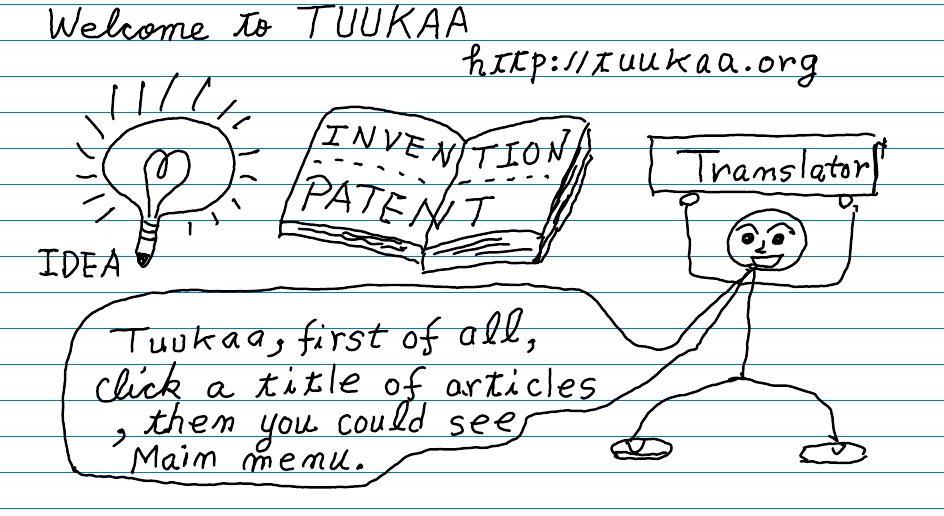 Welcome to TUUKAA
http://tuukaa.org
INVENTION
PATENT
Translator
IDEA
Tuukaa, first of all,
click a title of articles
, then you could see
Main menu.